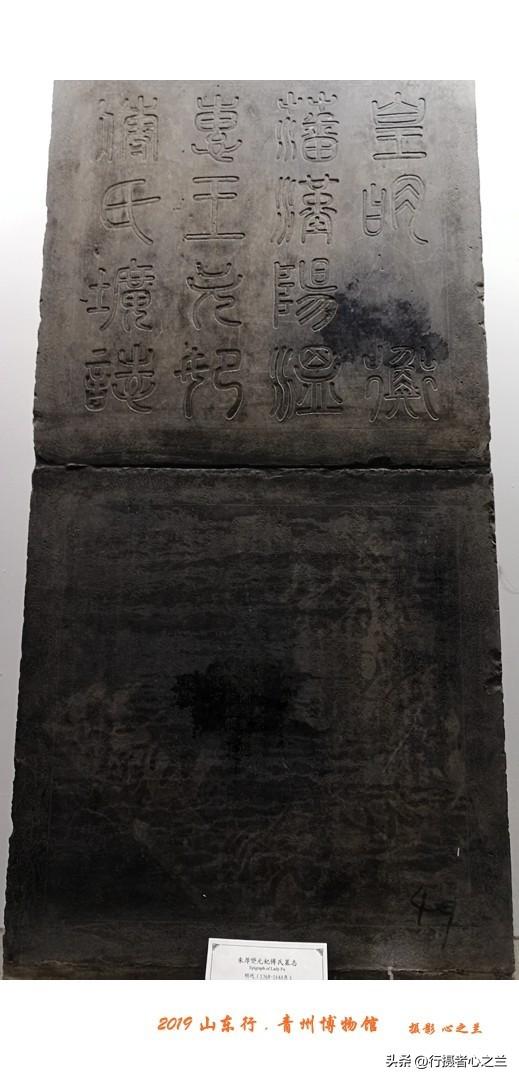 皇明衡
藩漢陽溫
惠王元妃
傅氏壙誌
元妃傅氏墓志
Epigraph of Lady Fu
明代（1368-1644年）
2019 山东行 . 青州博物馆 摄影 心之兰
头条 @行摄者心之兰